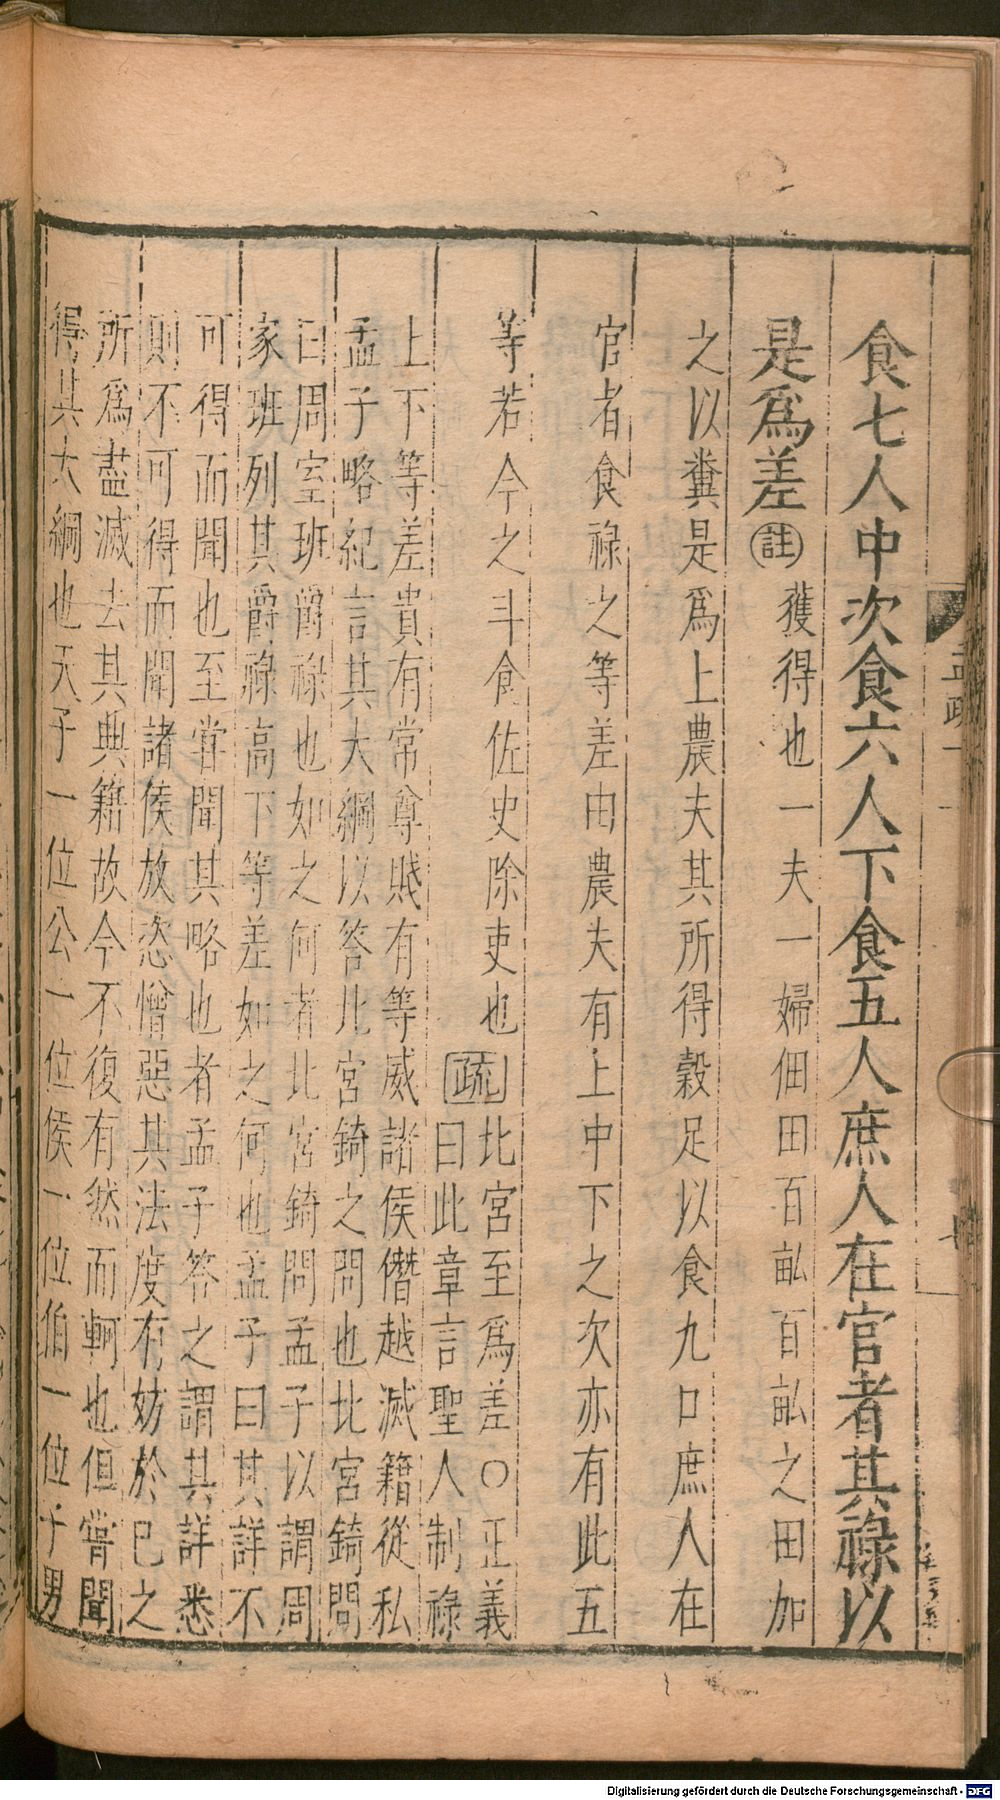 食七人中次食六人下食五人庶人在官者其祿以
是爲差㊟獲得也一夫一婦佃田百畝百畝之田加
之以糞是爲上農夫其所得穀足以食九口庶人在
官者食祿之等差由農夫有上中下之次亦有此五
等若今之斗食佐史除吏也疏北宮至爲差○正義
曰此章言聖人制祿
上下等差貴有常尊賤有等威諸侯僭越滅籍從私
孟子略紀言其大綱以答北宮錡之問也北宮錡問
曰周室班爵祿也如之何者北宮錡問孟子以謂周
家班列其爵祿高下等差如之何也孟子曰其詳不
可得而聞也至嘗聞其略也者孟子答之謂其詳悉
則不可得而聞諸侯放恣憎惡其法度有妨於已之
所爲盡滅去其典籍故今不復有然而軻也但嘗聞
得其大綱也天子一位公一位侯一位伯一位子男
Digitalisierung gefördert durch die Deutsche Forschungsgemeinschaft - DFG